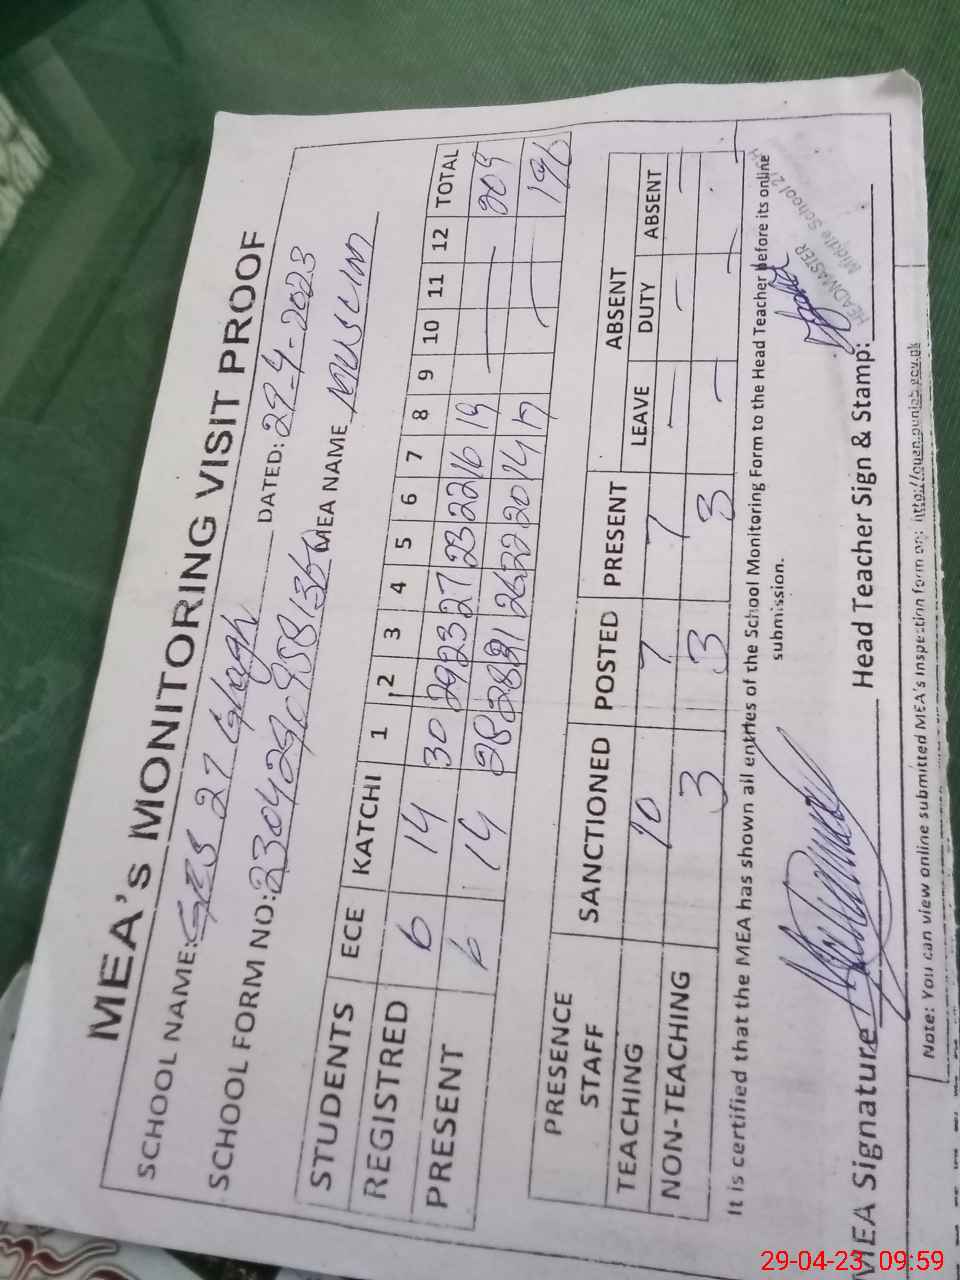 MEA's MONITORING VISIT PROOF
SCHOOL NAME: GES 27 DATED: 29-4-2023
SCHOOL FORM NO: MEA NAME
STUDENTS ECE KATCHI 1 2 3 4 5 6 7 8 9 10 11 12 TOTAL
REGISTRED 6 14 30 29 23 27 23 22 16 19 — 209
PRESENT 6 14 28 28 21 26 22 20 14 17 — 196
PRESENCE STAFF SANCTIONED POSTED PRESENT ABSENT
LEAVE DUTY ABSENT
TEACHING 10 7 7 — — —
NON-TEACHING 3 3 3 — — -
It is certified that the MEA has shown all entries of the School Monitoring Form to the Head Teacher before its online
submission.
HEADMASTER
Middle School 27
MEA Signature Head Teacher Sign & Stamp:
Note: You can view online submitted MEA's inspection form on: http://open.punjab.gov.pk
29-04-23 09:59